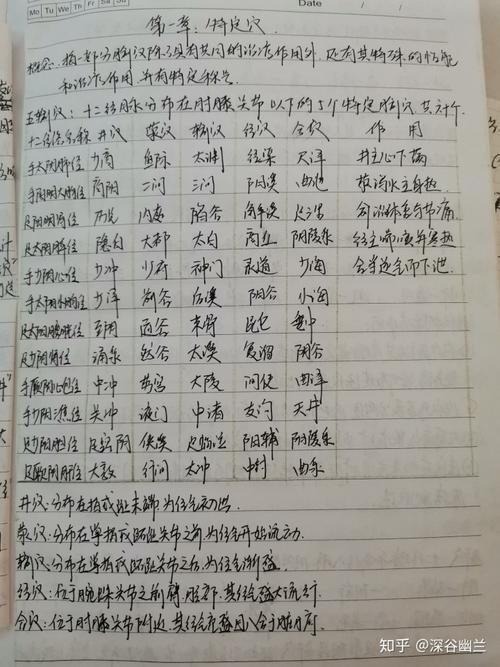 Mo Tu We Th Fr Sa Su Date
第一章:特定穴
概念:指一部分腧穴除了具有共同的治疗作用外,还有其特殊的性能
和治疗作用并有特定称号
五输穴:十二经脉分布在肘膝关节以下的5个特定腧穴,共计个.
十二经络名称 井穴 荥穴 输穴 经穴 合穴 作用
手太阴肺经 少商 鱼际 太渊 经渠 尺泽 井主心下满
手阳明大肠经 商阳 二间 三间 阳溪 曲池 荥满火主身热
足阳明胃经 厉兑 内庭 陷谷 解溪 足三里 俞治体重节痛
足太阴脾经 隐白 大都 太白 商丘 阴陵泉 经主喘咳与寒热
手少阴心经 少冲 少府 神门 灵道 少海 合主逆气而下泄.
手太阳小肠经 少泽 前谷 后溪 阳谷 小海
足太阳膀胱经 至阴 通谷 束骨 昆仑 委中
足少阴肾经 涌泉 然谷 太溪 复溜 阴谷
手厥阴心包经 中冲 劳宫 大陵 间使 曲泽
手少阳三焦经 关冲 液门 中渚 支沟 天井
足少阳胆经 足窍阴 侠溪 足临泣 阳辅 阳陵泉
足厥阴肝经 大敦 行间 太冲 中封 曲泉
井穴:分布在指或趾末端为经气初出
荥穴:分布在掌指或跖趾关节之前为经气开始流动.
输穴:分布在掌指或跖趾关节之后为经气渐盛.
经穴:位于腕踝关节之前臂、胫部,其经气盛大流行
合穴:位于肘膝关节附近其经气充盛且入合于脏府.
知乎 @深谷幽兰